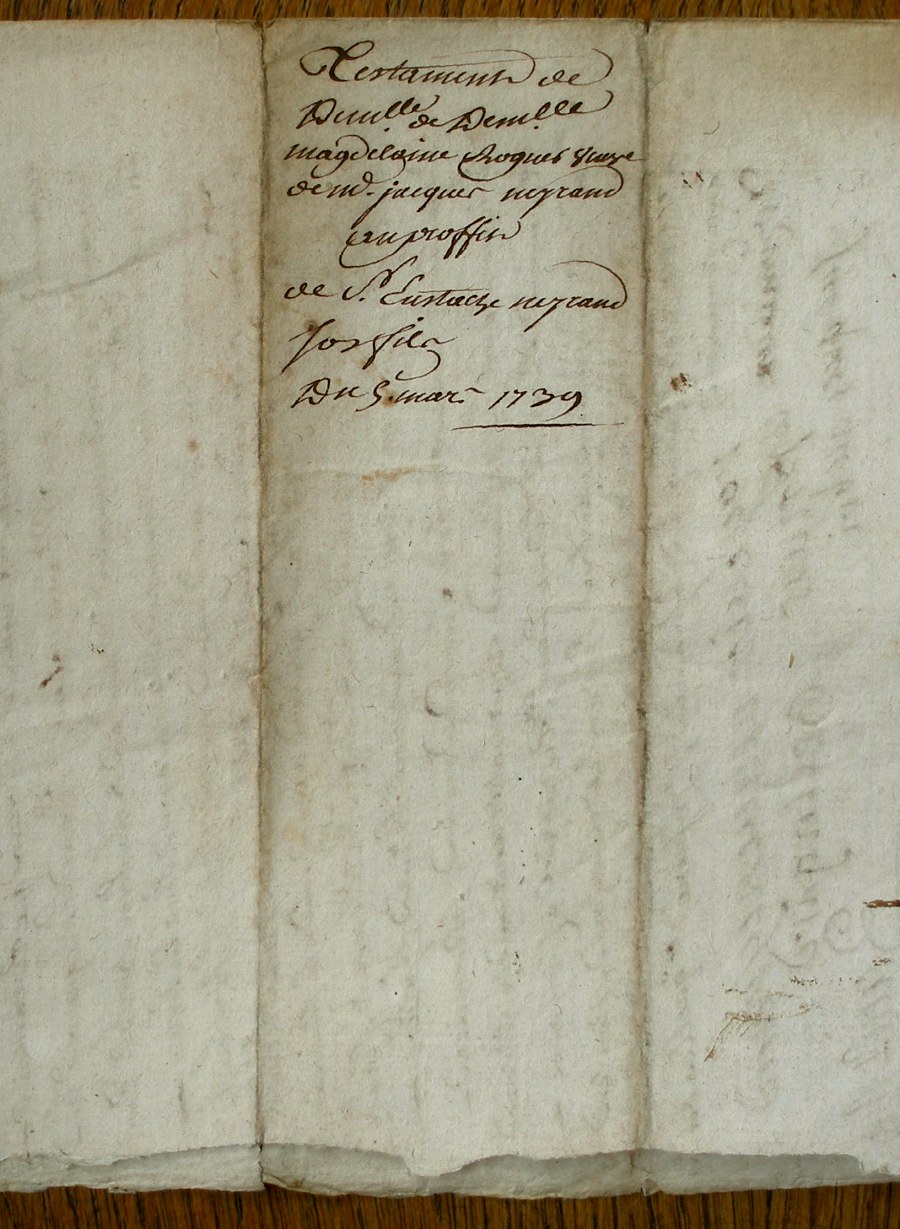 Testament de
Demlle de Demlle
magdelaine Roques veuve
de md. jacques neyrand
au proffit
de Sr Eustache neyrand
son fils
Du 5 mars 1739